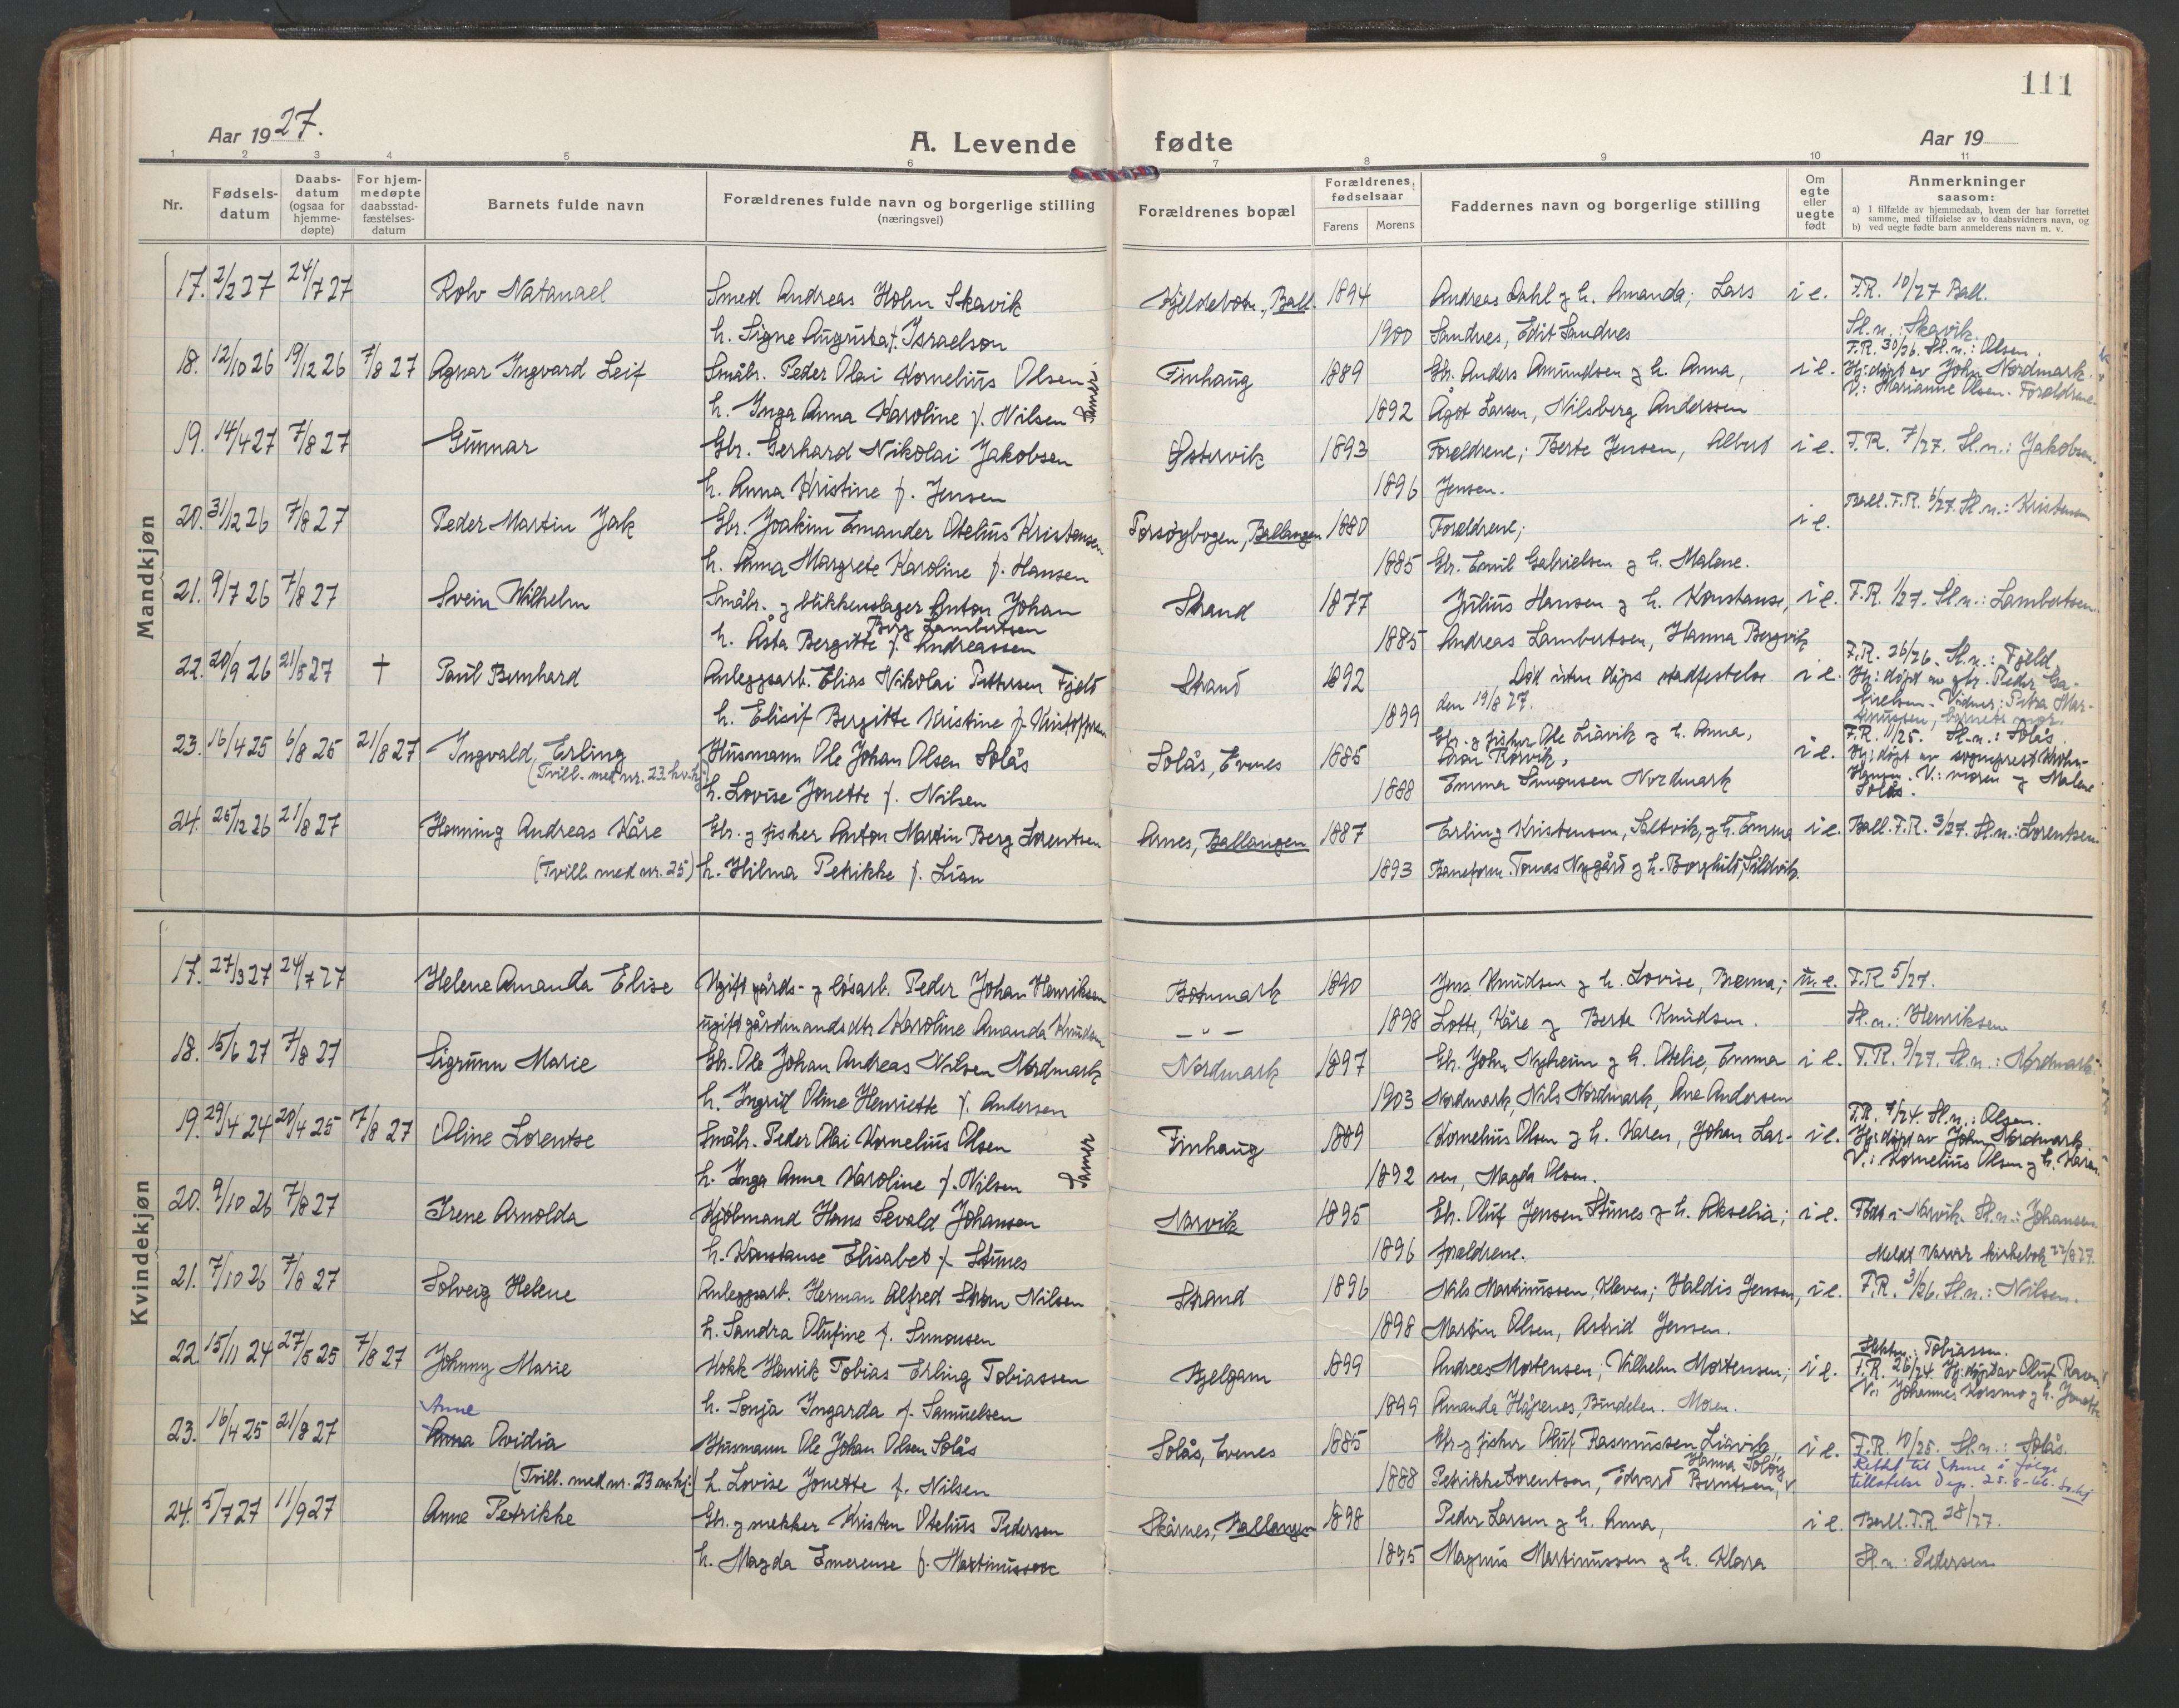 111
Aar 1927.
A. Levende fødte
Aar 19
1 2 3 4 5 6 7 8 9 10 11
Nr.
Fødsels-
datum
Daabs-
datum
(ogsaa for
hjemme-
døpte)
For hjem-
medøpte
daabsstad-
fæstelses-
datum
Barnets fulde navn
Forældrenes fulde navn og borgerlige stilling
(næringsvei)
Forældrenes bopæl
Forældrenes
fødselsaar
Farens Morens
Faddernes navn og borgerlige stilling
Om
egte
eller
uegte
født
Anmerkninger
saasom:
a) I tilfælde av hjemmedaab, hvem der har forrettet
samme, med tilføielse av to daabsvidners navn, og
b) ved uegte fødte barn anmelderens navn m. v.
Mandkjøn
17. 2/2 27 24/7 27 Rolv Natanael Smed Andreas Holm Skavik Kjeldebotn, Ball. 1894 Andreas Dahl og h. Amanda; Lars i e. F.R. 10/27 Ball.
h. Signe Augusta f. Israelson 1900 Sandnes, Edit Sandnes Sl.n.: Skavik
F.R. 30/26. Sl.n.: Olsen.
18. 12/10 26 19/12 26 7/8 27 Agnar Ingvard Leif Småbr. Peder Olai Kornelius Olsen Finhaug 1889 Gbr. Anders Amundsen og h. Anna, i e. Hj: døpt av John Nordmark.
h. Inga Anna Karoline f. Nilsen Samer 1892 Ågot Larsen, Nilsberg Anderssen V.: Marianne Olsen. Foreldrene.
19. 14/4 27 7/8 27 Gunnar Gbr. Gerhard Nikolai Jakobsen Østervik 1893 Foreldrene; Berte Jensen, Albert i e. F.R. 7/27. Sl.n.: Jakobsen.
h. Anna Kristine f. Jensen 1896 Jensen.
20. 31/12 26 7/8 27 Peder Martin Jak Gbr. Joakim Emander Otelius Kristensen Forsøgbogen, Ballangen 1880 Foreldrene; i e. Ball. F.R. 6/27. Sl.n.: Kristensen
h. Anna Margrete Karoline f. Hansen 1885 Gbr. Emil Gabrielsen og h. Malene.
21. 9/7 26 7/8 27 Svein Wilhelm Småbr. og blikkenslager Anton Johan Strand 1877 Julius Hansen og h. Konstanse, i e. F.R. 1/27. Sl.n.: Lambertsen
Berg Lambertsen
h. Åsta Bergitte f. Andreassen 1885 Andreas Lambertsen, Hanna Bergvik
22. 20/9 26 21/5 27 † Paul Bernhard Anleggsarb. Elias Nikolai Pettersen Fjeld Strand 1892 Død uten dåps stadfestelse i e. F.R. 26/26. Sl.n.: Fjeld.
Hj: døpt av gbr. Peder Ga-
h. Elisif Bergitte Kristine f. Kristoffersen 1899 den 19/8 27. brielsen. Vidner: Petra Mar-
tinussen, barnets mor.
23. 16/4 25 6/8 25 21/8 27 Ingvald Erling Husmann Ole Johan Olsen Solås Solås, Evenes 1885 Gbr. og fisher Ole Liavik og h. Anna, i e. F.R. 11/25. Sl.n.: Solås.
(Tvill. med nr. 23. kv.kj.) h. Lovise Jonette f. Nilsen 1888 Emma Simonsen Nordmark Hj: døpt av sogneprest Krohn-
Hansen. V.: moren og Malene
Solås.
24. 25/12 26 21/8 27 Henning Andreas Kåre Gbr. og fisher Anton Martin Berg Lorentsen Arnes, Ballangen 1887 Erling Kristensen, Saltvik, og h. Emma i e. Ball. F.R. 3/27. Sl.n.: Lorentsen
(Tvill. med nr. 25) h. Hilma Petrikke f. Lian 1893 Baneform. Tomas Nygård og h. Borghild, Sildvik.
Kvindekjøn
17. 27/3 27 24/7 27 Helene Amanda Elise Ugift gårds- og løsarb. Peder Johan Henriksen Botnmark 1890 Jens Knudsen og h. Lovise, Brenna; u. e. F.R 5/27.
ugift gårdmandsdtr Karoline Amanda Knudsen — " — 1898 Lotte, Kåre og Berte Knudsen. Sl.n.: Henriksen
18. 15/6 27 7/8 27 Sigrunn Marie Gbr. Ole Johan Andreas Nilsen Nordmark Nordmark 1897 Gbr. John Nyheim og h. Otelie, Emma i e. F.R. 9/27. Sl.n.: Nordmark
h. Ingrid Oline Henriette f. Andersen 1903 Nordmark, Nils Nordmark, Ane Andersen
19. 29/4 24 20/4 25 7/8 27 Oline Lorentse Småbr. Peder Olai Kornelius Olsen Finhaug 1889 Kornelius Olsen og h. Karen, Johan Lar- i e. F.R. 7/24. Sl.n.: Olsen.
Hj: døpt av John Nordmark.
h. Inga Anna Karoline f. Nilsen Samer 1892 sen, Magda Olsen. V.: Kornelius Olsen og h. Karen
20. 9/10 26 7/8 27 Irene Arnolda Kjøbmand Hans Sevald Johansen Narvik 1895 Gbr. Oluf Jensen Stunes og h. Akselia; i e. Født i Narvik. Sl.n.: Johansen
h. Konstanse Elisabet f. Stunes 1896 foreldrene. Meldt Narvik kirkebok 22/8 27.
21. 7/10 26 7/8 27 Solveig Helene Anleggsarb. Herman Alfred Strøm Nilsen Strand 1896 Nils Martinussen, Kleven; Valdis Jensen, i e. F.R. 31/26. Sl.n.: Nilsen.
h. Sandra Olufine f. Simonsen 1898 Martin Olsen, Astrid Jensen.
22. 15/11 24 27/5 25 7/8 27 Johnny Marie Kokk Henrik Tobias Erling Tobiassen 1899 Andreas Mortensen; Vilhelm Mortensen; i e. Slektsn: Tobiassen.
F.R. 26/24. Hj: døpt av Oluf Ravn
h. Sonja Ingarda f. Samuelsen 1899 Amanda Håpenes, Bindalen. Moren. V.: Johannes Korsmo og h. Jonette
23. 16/4 25 21/8 27 Anne Anna Ovidia Husmann Ole Johan Olsen Solås Solås, Evenes 1885 Gbr. og fisher Oluf Rasmussen Liavik, i e. F.R. 10/25. Sl.n.: Solås.
Hanna Solberg
(Tvill. med nr. 23 m.kj.) h. Lovise Jonette f. Nilsen 1888 Petrikke Lorentsen, Edvard Berntsen, Rettet til Anne i følge
tillatelse Dep. 25.8-66.
24. 5/7 27 11/9 27 Anna Petrikke Gbr. og snekker Kristen Otelius Pedersen Skårnes, Ballangen 1898 Peder Larsen og h. Anna, i e. Ball. F.R. 28/27.
h. Magda Emerense f. Martinussen 1895 Magnus Martinussen og h. Klara Sl.n.: Pedersen